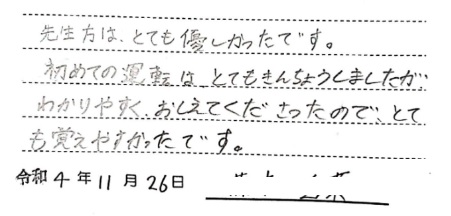 先生方は、とても優しかったです。
初めての運転は、とてもきんちょうしましたが、
わかりやすく、おしえてくださったので、とて
も覚えやすかったです。
令和4年11月26日